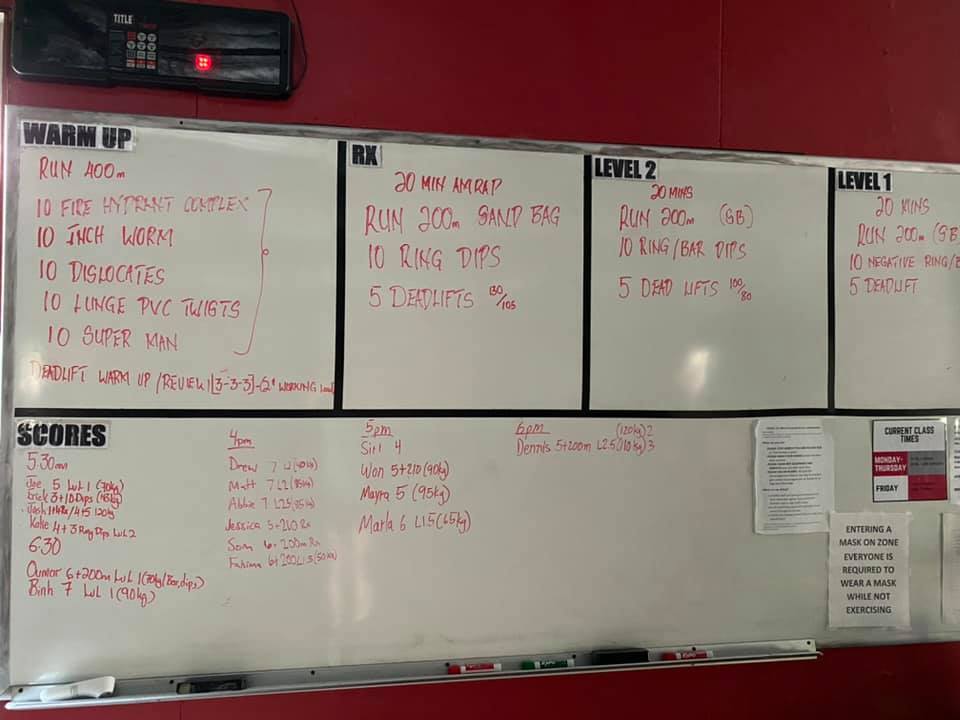 TITLE
WARM UP
RUN 400m
10 FIRE HYDRANT COMPLEX
10 INCH WORM
10 DISLOCATES
10 LUNGE PVC TWISTS
10 SUPER MAN
DEADLIFT WARM UP / REVIEW [3-3-3]
WORKING
RX
20 MIN AMRAP
RUN 200m SAND BAG
10 RING DIPS
5 DEADLIFTS 130/105
LEVEL 2
20 MINS
RUN 200m (SB)
10 RING/BAR DIPS
5 DEAD LIFTS 100/80
LEVEL 1
20 MINS
RUN 200m (SB
10 NEGATIVE RING/B
5 DEADLIFT
SCORES
5:30am
Joe 5 LvL 1 (70kg)
3+10 Dips
Katie 4+3 Ring Dips LvL 2
6:30
6+200m LvL 1 (70kg/Bar, dips)
Binh 7 LvL 1 (90kg)
4pm
Drew 7 L2
Matt 7 L2 (85kg)
Abbie 7
Jessica 5+210 Rx
Sam 6+200m Rx
5pm
Siri 4
Won 5+210 (90kg)
Mayra 5 (95kg)
Marla 6 L1.5 (65kg)
6pm
(120kg) 2
Dennis 5+200m L2.5 (110kg) 3
CURRENT CLASS
TIMES
MONDAY-
THURSDAY
FRIDAY
ENTERING A
MASK ON ZONE
EVERYONE IS
REQUIRED TO
WEAR A MASK
WHILE NOT
EXERCISING